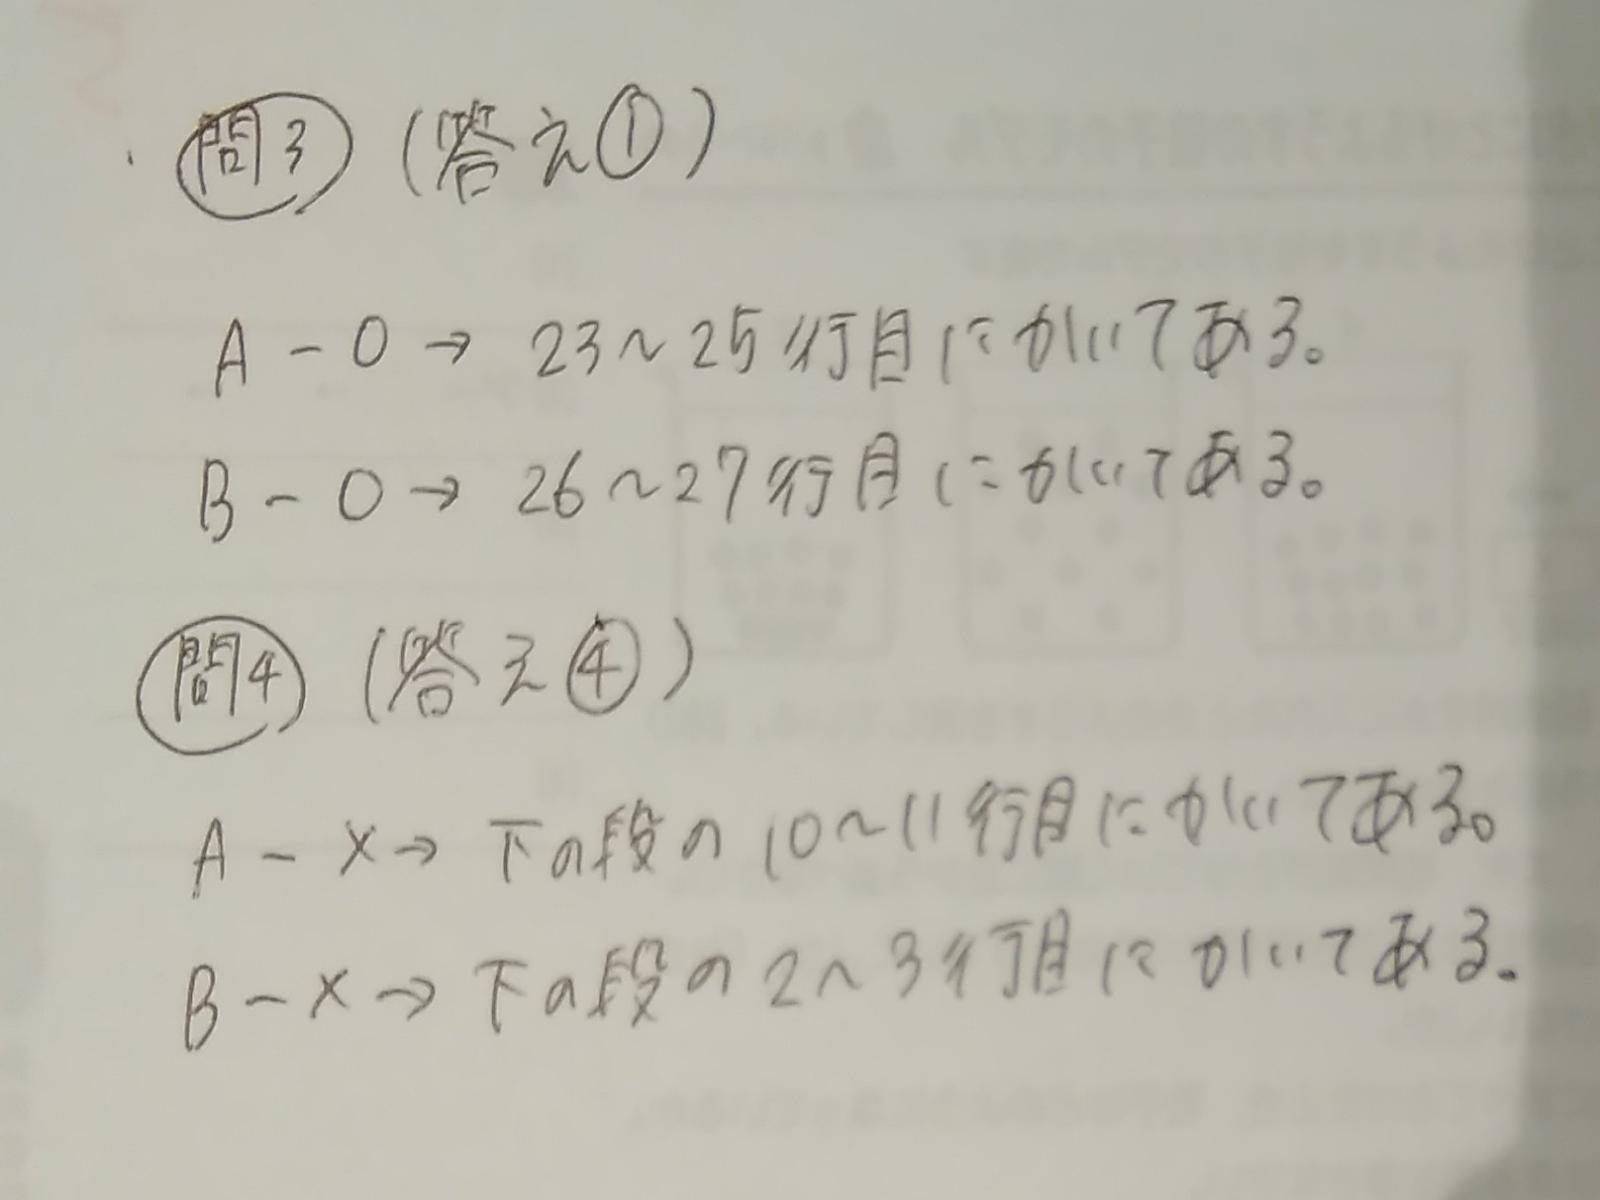 問3 (答え①)
A-0→ 23~25行目にかいてある。
B-0→ 26~27行目にかいてある。
問4 (答え④)
A-×→ 下の段の10~11行目にかいてある。
B-×→ 下の段の2~3行目にかいてある。